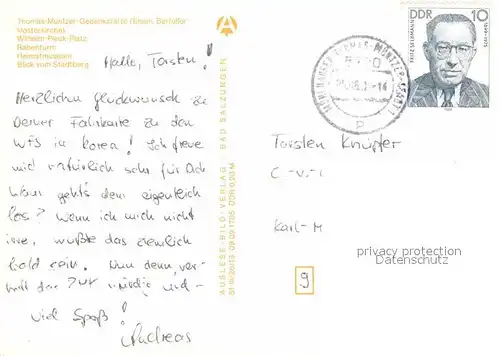 Thomas-Müntzer-Gedenkstätte (Ehem. Barfüßer
Klosterkirche)
Wilhelm-Pieck-Platz
Rabenturm
Heimatmuseum
Blick vom Stadtberg
Hallo, Torsten!
Herzlichen Glückwunsch zu
Deiner Fahrkarte zu den
WFS in Korea! Ich freue
mich natürlich sehr für Dich
Wann geht's denn eigentlich
los? Wenn ich mich nicht
irre, müßte das ziemlich
bald sein. Nun denn,
viel Spaß!
Andreas
AUSLESE-BILD-VERLAG BAD SALZUNGEN
DDR 0,20 M
A
DDR 10
FRITZ SELBMANN
THOMAS-MÜNTZER-STADT
Torsten Knüpfer
C-v-
Karl-M
privacy protection
Datenschutz
9